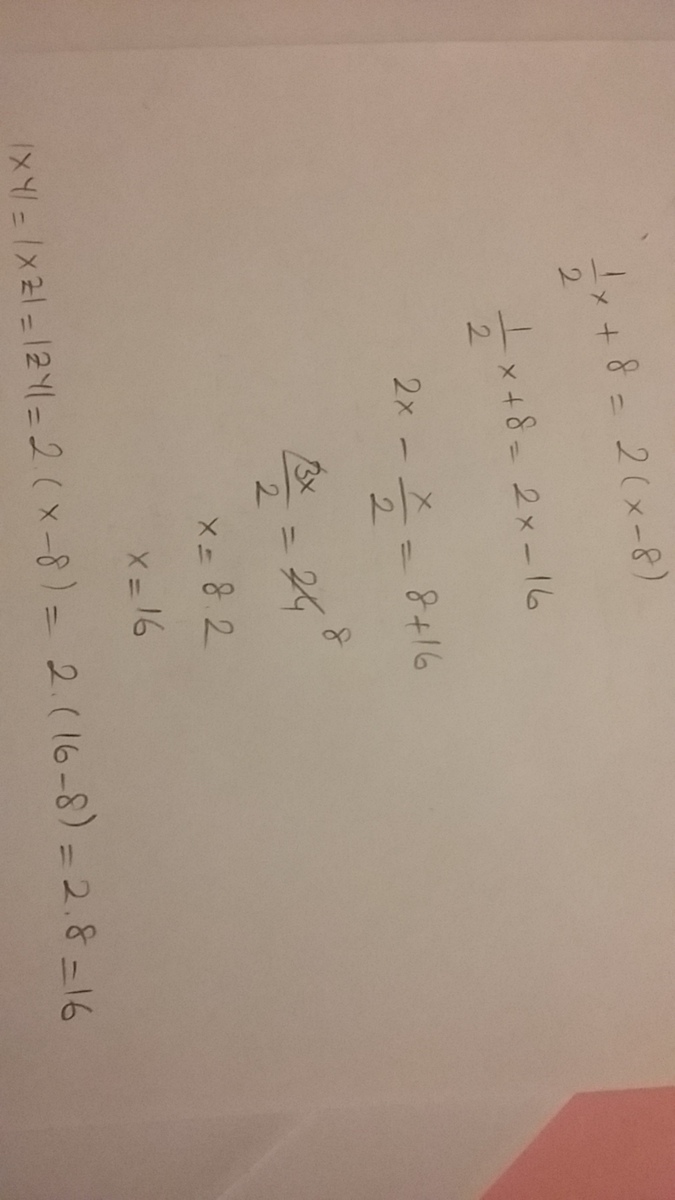 1/2 x + 8 = 2(x-8)
1/2 x + 8 = 2x - 16
2x - x/2 = 8 + 16
3x/2 = 24 8
x = 8.2
x = 16
|XY| = |XZ| = |ZY| = 2.(x-8) = 2.(16-8) = 2.8 = 16